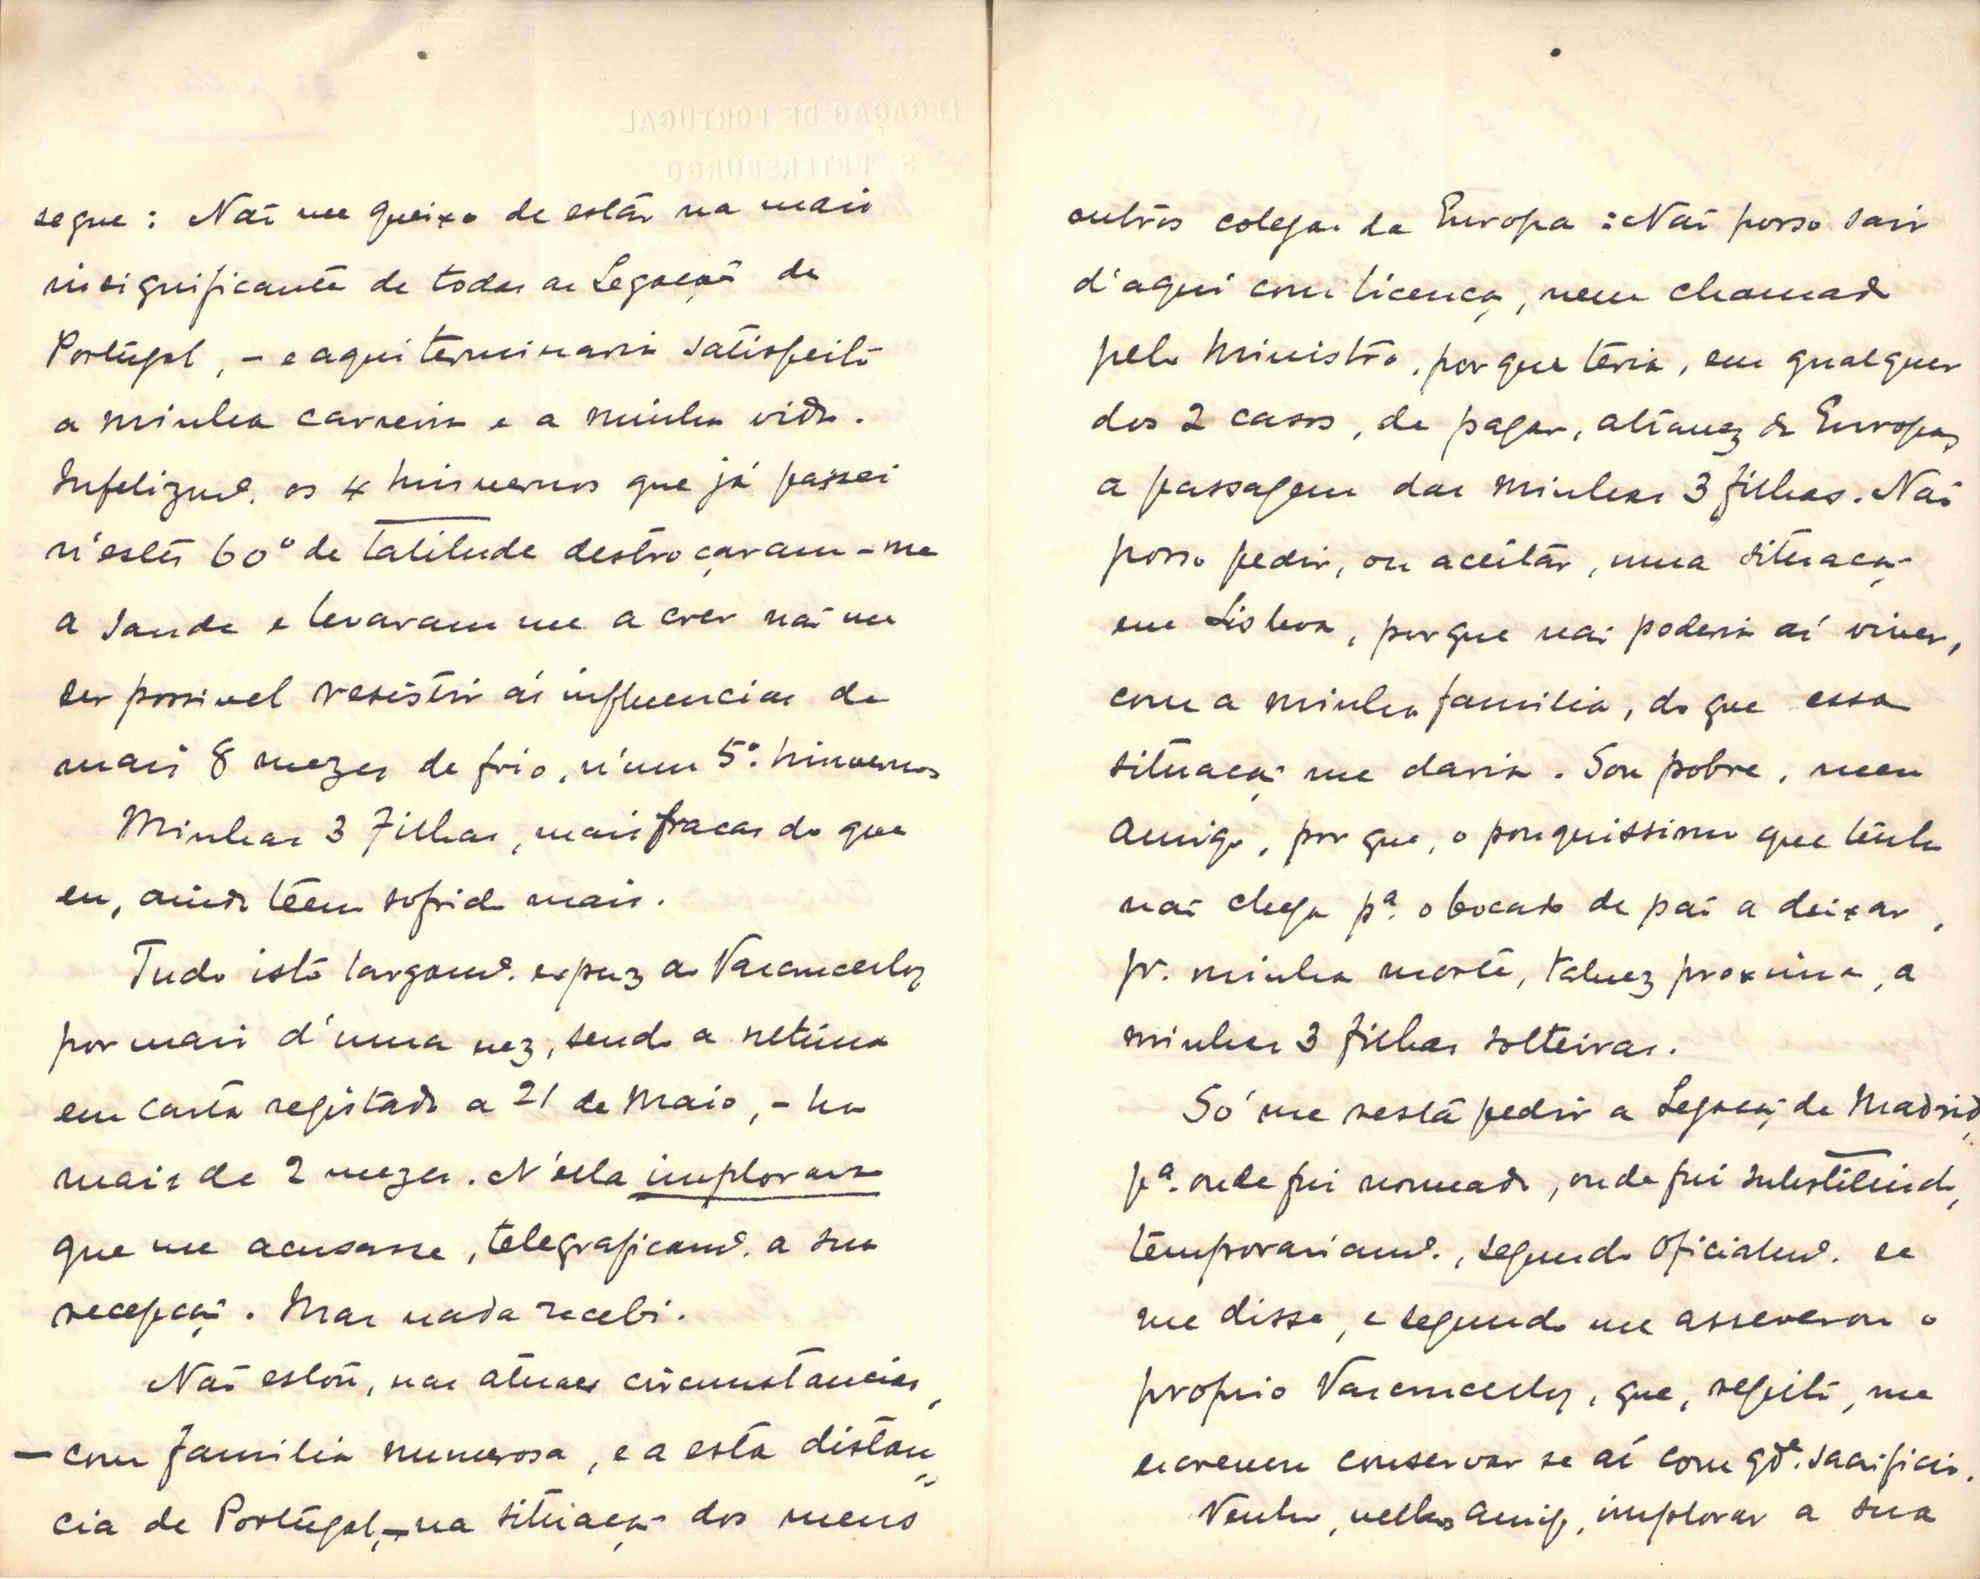 LEGAÇÃO DE PORTUGAL
S. PETERSBURGO
segue: Não me queixo de estár na mais
insignificante de todas as Legações de
Portugal, – e aqui terminaria satisfeito
a minha carreira e a minha vida.
Infelizmᵉ. os 4 hinvernos que já passei
n'estes 60° de latitude destroçaram-me
a saude e levaram me a crer não me
ser possivel resistir ás influencias de
mais 8 mezes de frio, n'um 5º. hinverno
Minhas 3 filhas, mais fracas do que
eu, ainda têem sofrido mais.
Tudo isto largamᵉ. expuz ao Vasconcellos
por mais d'uma vez, sendo a
em carta registada a 21 de Maio, – ha
mais de 2 mezes. N'ella implorava
que me acusasse, telegraficamᵉ. a sua
recepção. Mas nada recebi.
Não estou, nas atuaes circumstancias,
– com familia numerosa, e a esta distan
cia de Portugal, – na situação dos meus
outros colegas da Europa: Não posso sair
d'aqui com licença, nem chamado
pelo Ministro, porque teria, em qualquer
dos 2 casos, de pagar, atravez da Europa,
a passagem das minhas 3 filhas. Não
posso pedir, ou aceitár, uma situação
em Lisboa, porque não poderia aí viver,
com a minha familia, do que essa
situação me daria. Sou pobre, meu
Amigo, por que, o pouquissimo que tenho
não chega pª. o bocado de pão a deixar,
pr. minha morte, talvez proxima, a
minhas 3 filhas solteiras.
Só me resta pedir a Legação de Madrid,
pª. onde fui nomeado, onde fui substituido,
temporariamᵉ., segundo oficialmᵉ. se
me disse, e segundo me asseverou o
proprio Vasconcellos, que, repito, me
escreveu conservar se aí com gdᵉ. sacrificio.
Venho, velho Amigo, implorar a sua